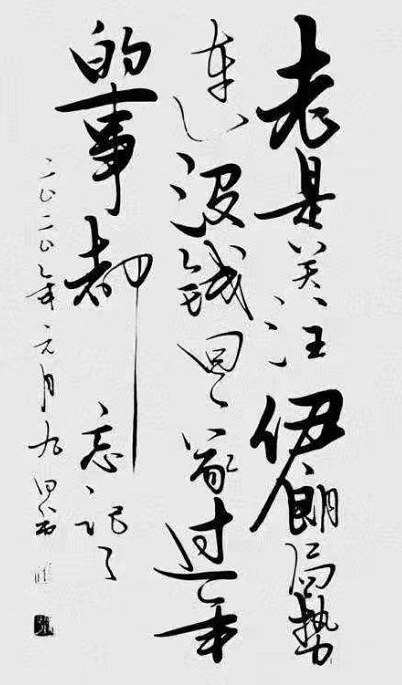 老是关注伊朗局势
连没钱回家过年
的事都忘记了
二〇二〇年元月九日